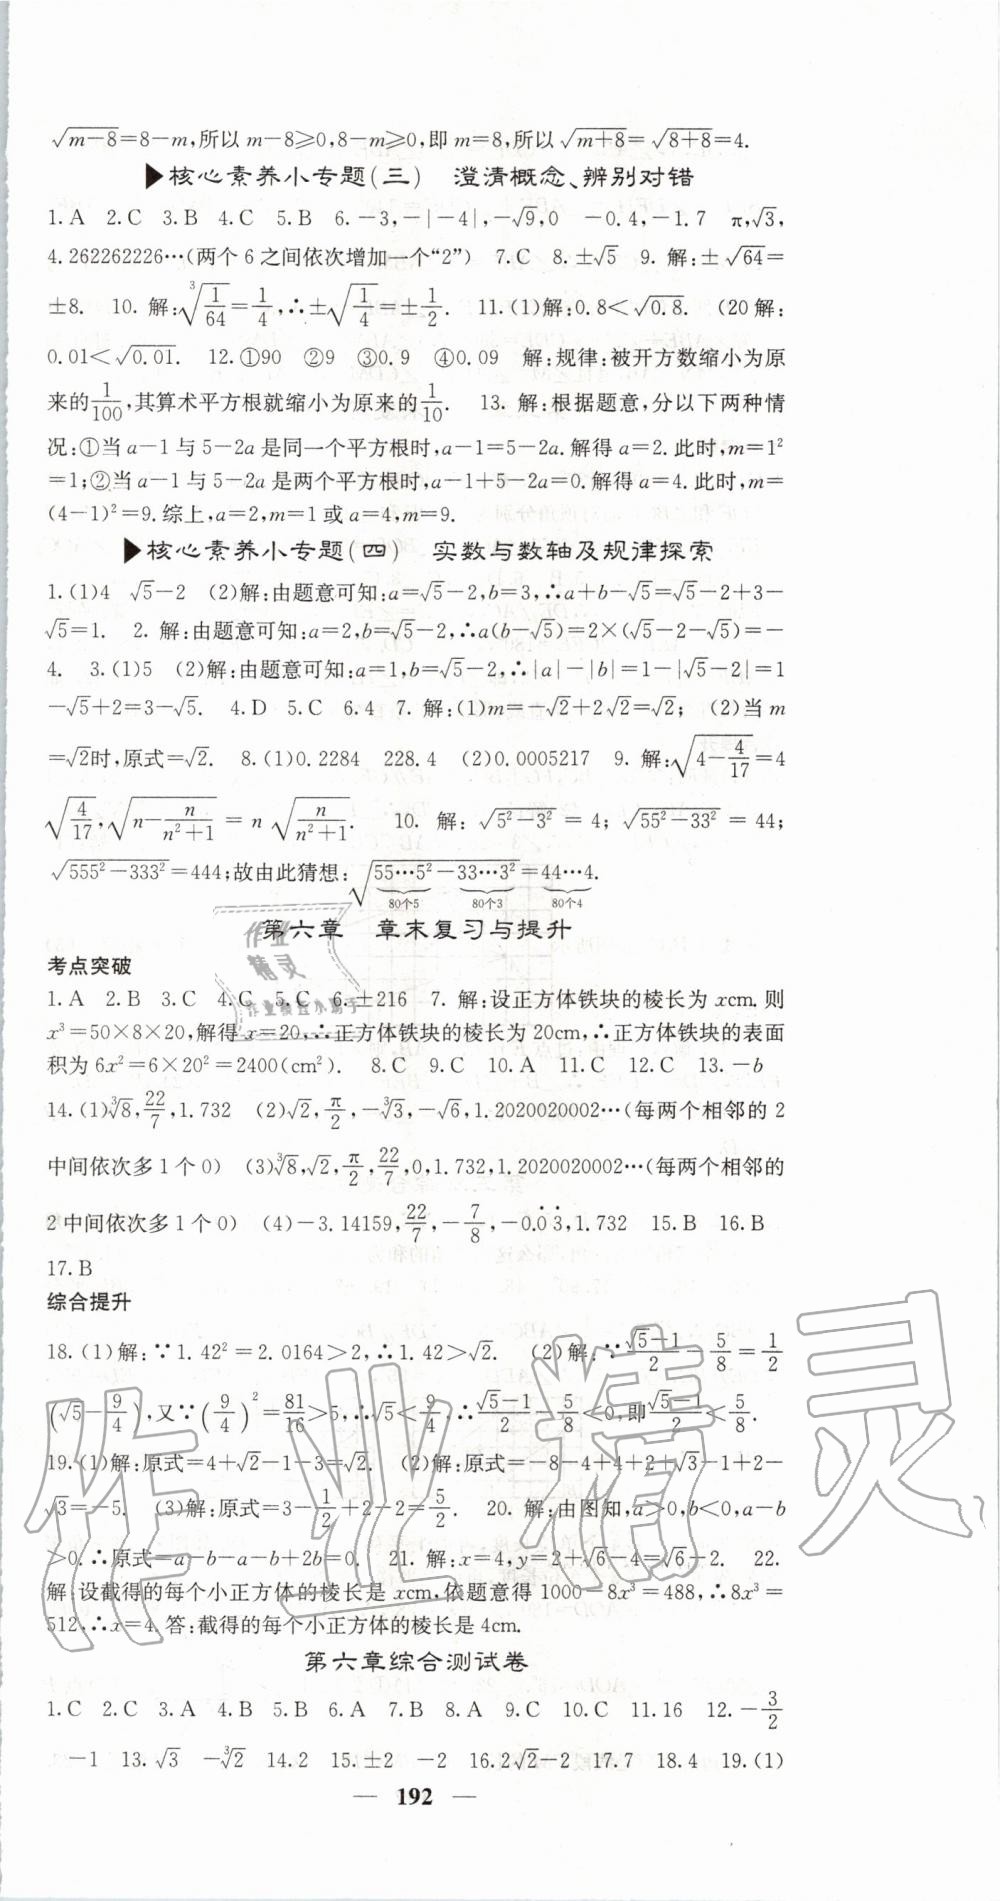 √(m-8)=8-m,所以 m-8≥0,8-m≥0,即 m=8,所以√(m+8)=√(8+8)=4.
▶核心素养小专题(三) 澄清概念、辨别对错
1.A 2.C 3.B 4.C 5.B 6.-3,-|-4|,-√9,0 -0.4,-1.7 π,√3,
4.262262226…(两个 6 之间依次增加一个“2”) 7.C 8.±√5 9.解:±√64=
±8. 10.解:∛(1/64)=1/4,∴±√(1/4)=±1/2. 11.(1)解:0.8<√0.8. (20解:
0.01<√0.01. 12.①90 ②9 ③0.9 ④0.09 解:规律:被开方数缩小为原
来的1/100,其算术平方根就缩小为原来的1/10. 13.解:根据题意,分以下两种情
况:①当 a-1 与 5-2a 是同一个平方根时,a-1=5-2a.解得 a=2.此时,m=1²
=1;②当 a-1 与 5-2a 是两个平方根时,a-1+5-2a=0.解得 a=4.此时,m=
(4-1)²=9.综上,a=2,m=1 或 a=4,m=9.
▶核心素养小专题(四) 实数与数轴及规律探索
1.(1)4 √5-2 (2)解:由题意可知:a=√5-2,b=3,∴a+b-√5=√5-2+3-
√5=1. 2.解:由题意可知:a=2,b=√5-2,∴a(b-√5)=2×(√5-2-√5)=-
4. 3.(1)5 (2)解:由题意可知:a=1,b=√5-2,∴|a|-|b|=1-|√5-2|=1
-√5+2=3-√5. 4.D 5.C 6.4 7.解:(1)m=-√2+2√2=√2; (2)当 m
=√2时,原式=√2. 8.(1)0.2284 228.4 (2)0.0005217 9.解:√(4-4/17)=4
√(4/17),√(n-n/(n²+1))=n√(n/(n²+1)). 10.解:√(5²-3²)=4;√(55²-33²)=44;
√(555²-333²)=444;故由此猜想:√(55…5²-33…3²)=44…4.
80个5 80个3 80个4
第六章 章末复习与提升
考点突破
1.A 2.B 3.C 4.C 5.C 6.±216 7.解:设正方体铁块的棱长为 xcm.则
x³=50×8×20,解得 x=20,∴正方体铁块的棱长为 20cm,∴正方体铁块的表面
积为 6x²=6×20²=2400(cm²). 8.C 9.C 10.A 11.C 12.C 13.-b
14.(1)∛8,22/7,1.732 (2)√2,π/2,-∛3,-√6,1.2020020002…(每两个相邻的 2
中间依次多 1 个 0) (3)∛8,√2,π/2,22/7,0,1.732,1.2020020002…(每两个相邻的
2 中间依次多 1 个 0) (4)-3.14159,22/7,-7/8,-0.0̇3̇,1.732 15.B 16.B
17.B
综合提升
18.(1)解:∵1.42²=2.0164>2,∴1.42>√2. (2)解:∵(√5-1)/2-5/8=1/2
(√5-9/4),又∵(9/4)²=81/16>5,∴√5<9/4.∴(√5-1)/2-5/8<0,即(√5-1)/2<5/8.
19.(1)解:原式=4+√2-1-3=√2. (2)解:原式=-8-4+4+2+√3-1+2-
√3=-5. (3)解:原式=3-1/2+2-2=5/2. 20.解:由图知,a>0,b<0,a-b
>0.∴原式=a-b-a-b+2b=0. 21.解:x=4,y=2+√6-4=√6-2. 22.
解:设截得的每个小正方体的棱长是 xcm.依题意得 1000-8x³=488,∴8x³=
512,∴x=4.答:截得的每个小正方体的棱长是 4cm.
第六章综合测试卷
1.C 2.C 3.A 4.B 5.B 6.A 7.B 8.A 9.C 10.C 11.16 12.-3/2
-1 13.√3 -∛2 14.2 15.±2 -2 16.2√2-2 17.7 18.4 19.(1)
— 192 —
作业精灵
作业精灵